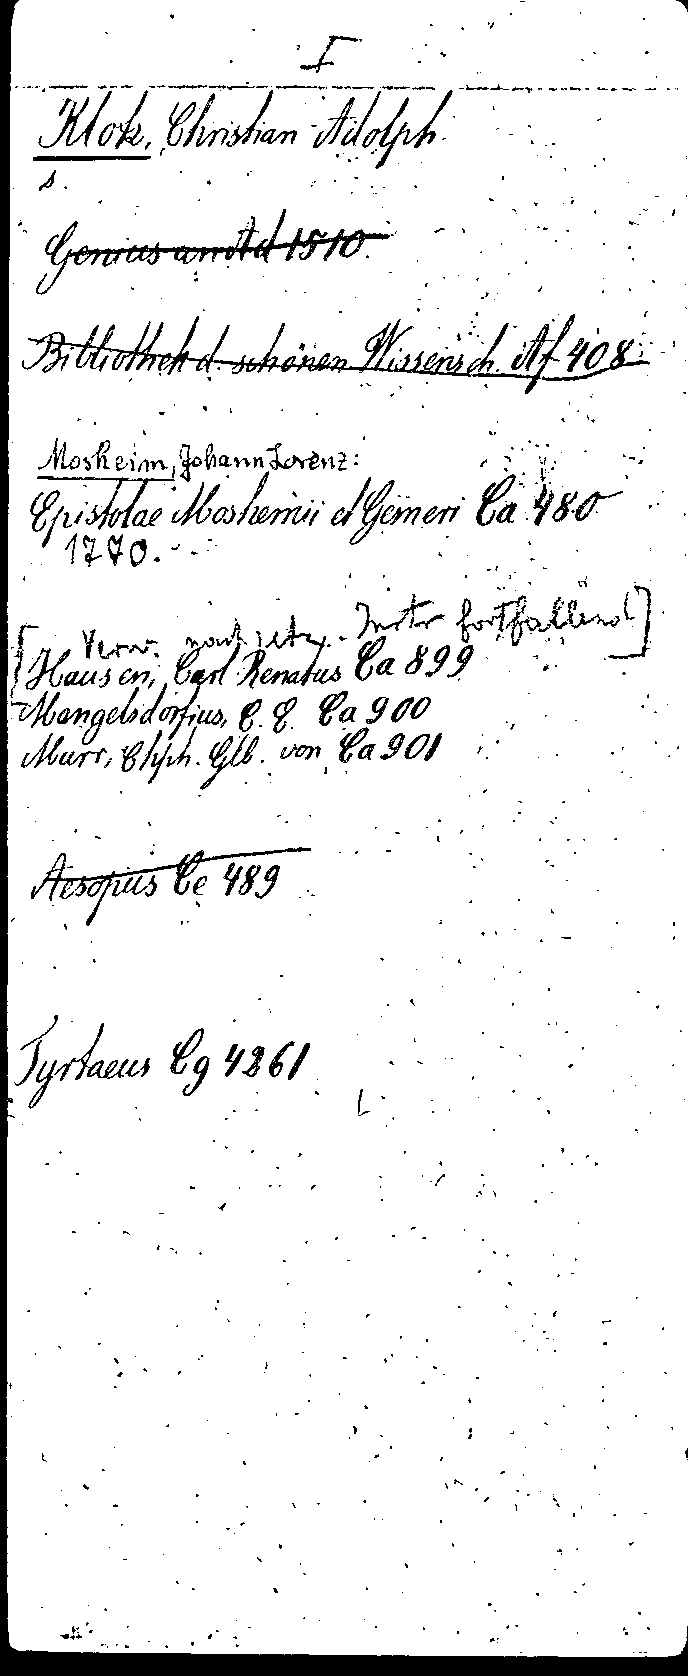 I
Klotz, Christian Adolph
s.
Genius am Ad 1510.
Bibliothek d. schönen Wissensch. Af 408
Mosheim, Johann Lorenz:
Epistolae Moshemii et Gesneri Ca 480
1770.
[Verw. nach jetz. Instr fortfallend]
Hausen, Carl Renatus Ca 899
Mangelsdorfius, C. E. Ca 900
Murr, Chph. Glb. von Ca 901
Aesopus Ce 489
Tyrtaeus Cg 4261